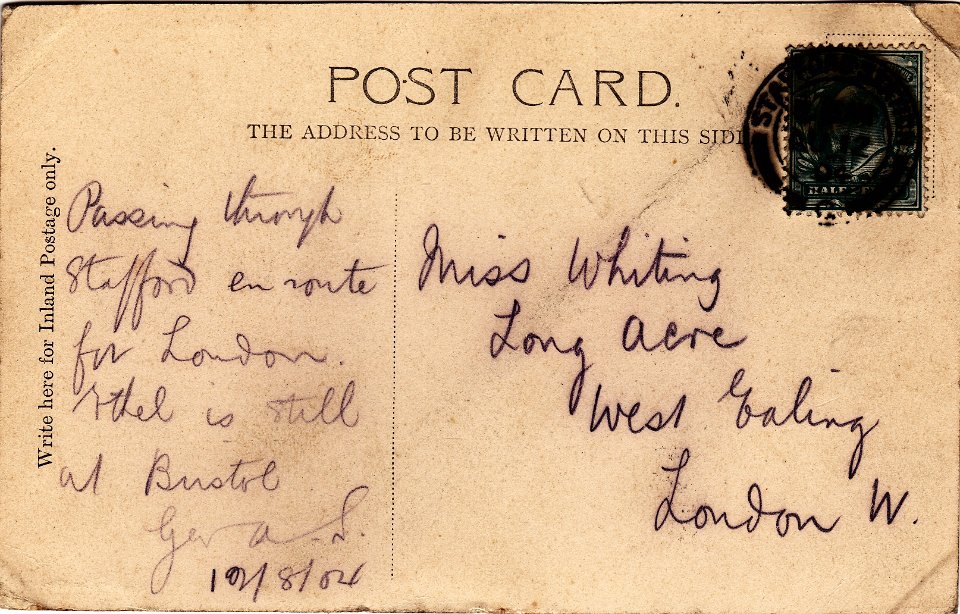 POST CARD.
THE ADDRESS TO BE WRITTEN ON THIS SIDE
Write here for Inland Postage only.
Passing through
Stafford en route
for London.
Ethel is still
at Bristol
A.S.
Miss Whiting
Long Acre
West Ealing
London W.
HALF
STA